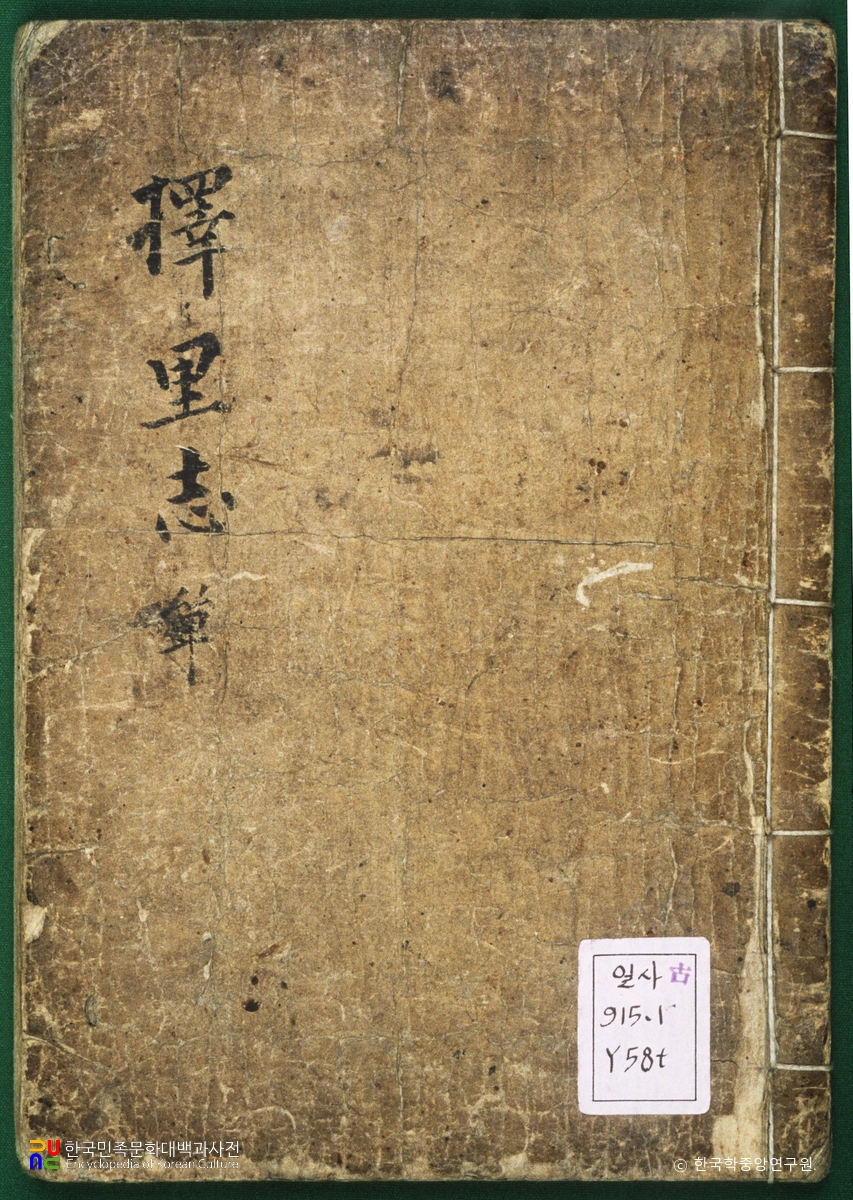 擇里志 單
일사 古
915.1
Y58t
한국민족문화대백과사전
Encyclopedia of Korean Culture
© 한국학중앙연구원